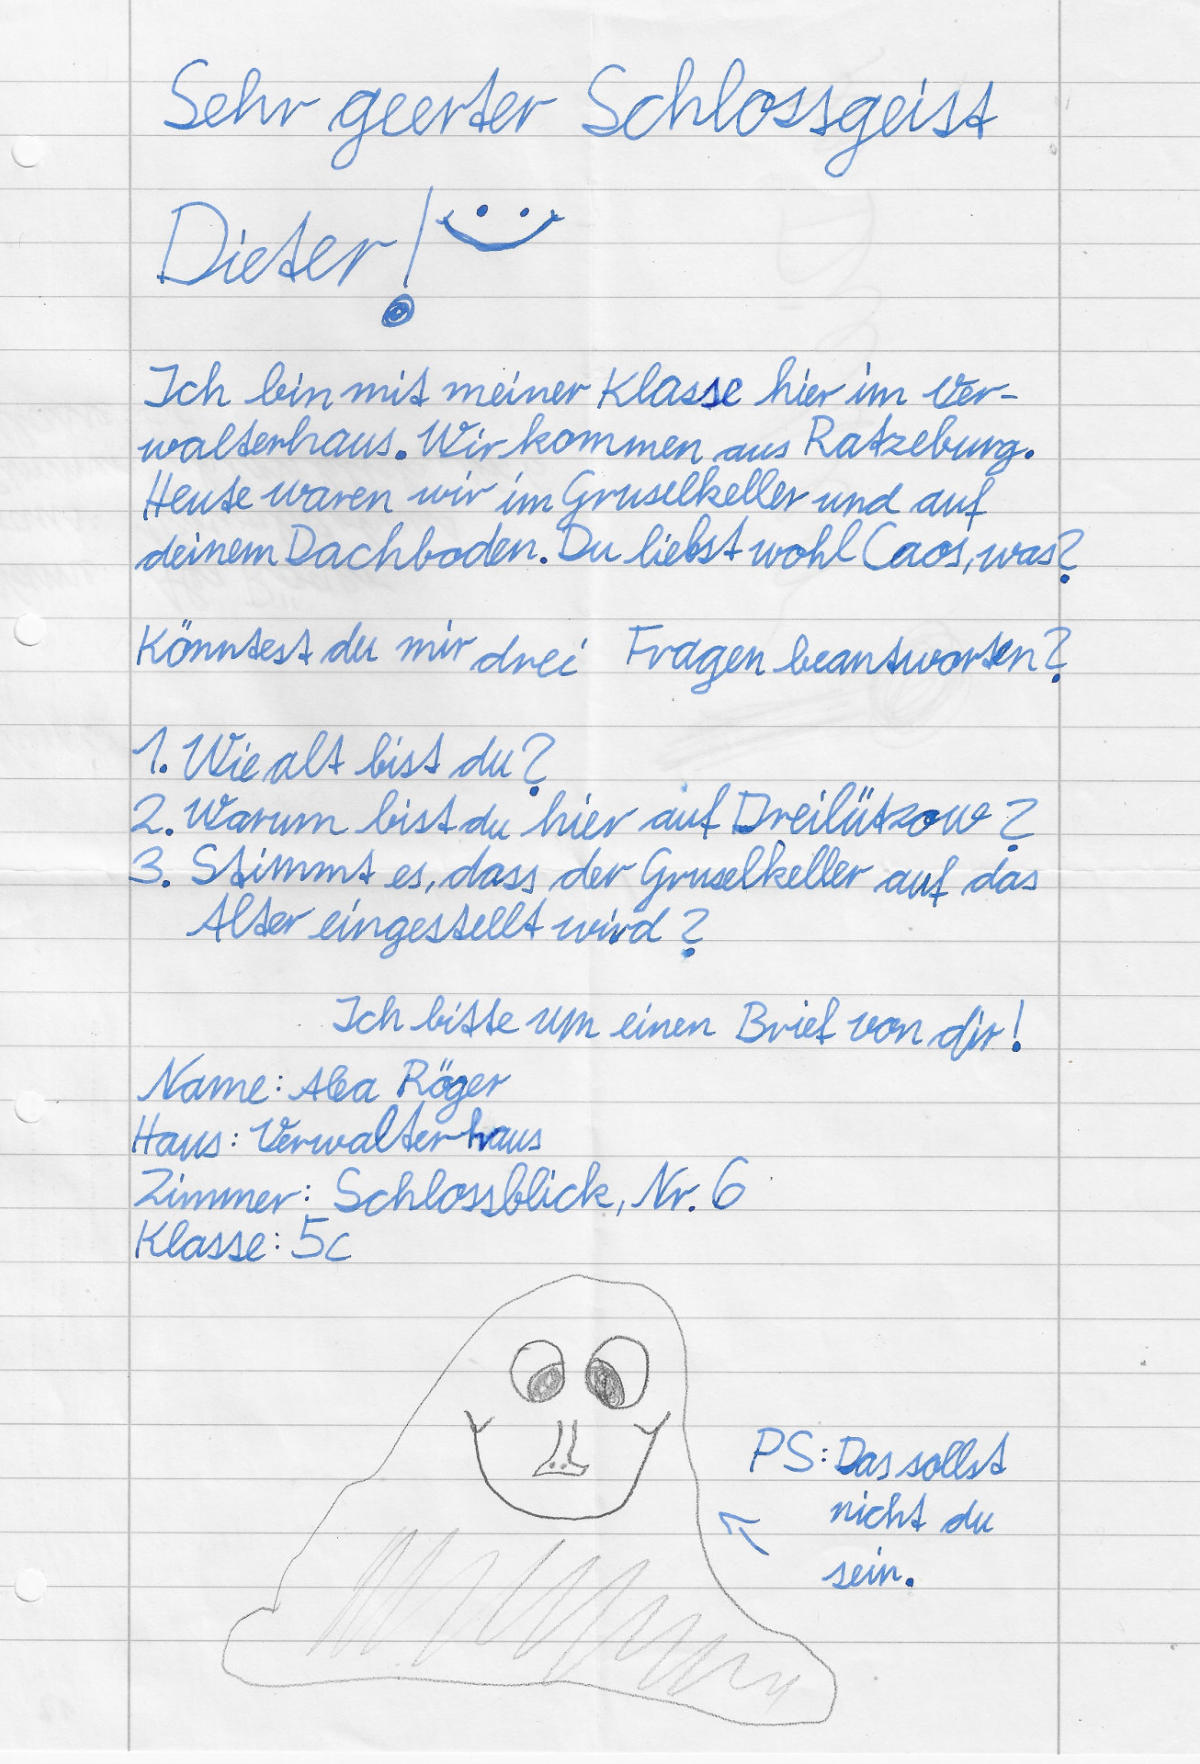 Sehr geerter Schlossgeist
Dieter!
Ich bin mit meiner Klasse hier im Ver-
walterhaus. Wir kommen aus Ratzeburg.
Heute waren wir im Gruselkeller und auf
deinem Dachboden. Du liebst wohl Caos, was?
Könntest du mir drei Fragen beantworten?
1. Wie alt bist du?
2. Warum bist du hier auf Dreilützow?
3. Stimmt es, dass der Gruselkeller auf das
Alter eingestellt wird?
Ich bitte um einen Brief von dir!
Name: Röger
Haus: Verwalterhaus
Zimmer: Schlossblick, Nr. 6
Klasse: 5c
PS: Das sollst
nicht du
sein.